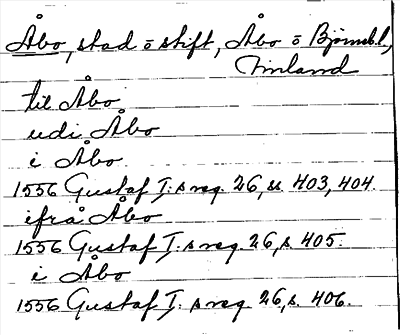 Åbo, stad o stift, Åbo o Björneb.l.,
Finland
til Åbo
udi Åbo
i Åbo
1556 Gustaf I:s reg. 26, ss. 403, 404.
ifrå Åbo
1556 Gustaf I:s reg. 26, s. 405.
i Åbo
1556 Gustaf I:s reg. 26, s. 406.